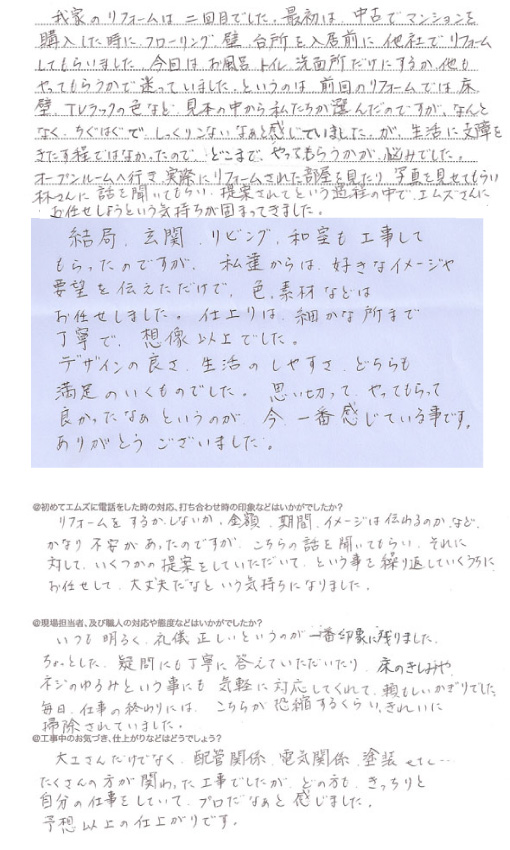 我家のリフォームは二回目でした。最初は、中古でマンションを
購入した時に、フローリング、壁、台所を入居前に他社でリフォーム
してもらいました。今回はお風呂、トイレ、洗面所だけにするか他も
やってもらうかで迷っていました。というのは、前回のリフォームでは床
壁、TVラックの色など、見本の中から私たちが選んだのですが、なんと
なく、ちぐはぐで、しっくりこないなぁと感じていました。が、生活に支障を
きたす程ではなかったので、どこまで、やってもらうかが悩みでした。
オープンルームへ行き、実際にリフォームされた部屋を見たり、写真を見せてもらい
林さんに話を聞いてもらい、提案されてという過程の中で、エムズさんに
お任せしようという気持ちが固まってきました。
結局、玄関、リビング、和室も工事して
もらったのですが、私達からは、好きなイメージや
要望を伝えただけで、色、素材などは
お任せしました。仕上りは、細かな所まで
丁寧で、想像以上でした。
デザインの良さ、生活のしやすさ、どちらも
満足のいくものでした。思い切って、やってもらって
良かったなぁというのが、今、一番感じている事です。
ありがとうございました。
@初めてエムズに電話をした時の対応、打ち合わせ時の印象などはいかがでしたか?
リフォームをするか、しないか、金額、期間、イメージは伝わるのか、など、
かなり不安があったのですが、こちらの話を聞いてもらい、それに
対して、いくつかの提案をしていただいて、という事を繰り返していくうちに
お任せして、大丈夫だなという気持ちになりました。
@現場担当者、及び職人の対応や態度などはいかがでしたか?
いつも明るく、礼儀正しいというのが一番印象に残りました。
ちょっとした、疑問にも丁寧に答えていただいたり、床のきしみや、
ネジのゆるみという事にも気軽に対応してくれて、頼もしいかぎりでした。
毎日、仕事の終わりには、こちらが恐縮するくらい、きれいに
掃除されていました。
@工事中のお気づき、仕上がりなどはどうでしょう?
大工さんだけでなく、配管関係、電気関係、塗装 etc…
たくさんの方が関わった工事でしたが、どの方も、きっちりと
自分の仕事をしていて、プロだなぁと感じました。
予想以上の仕上がりです。